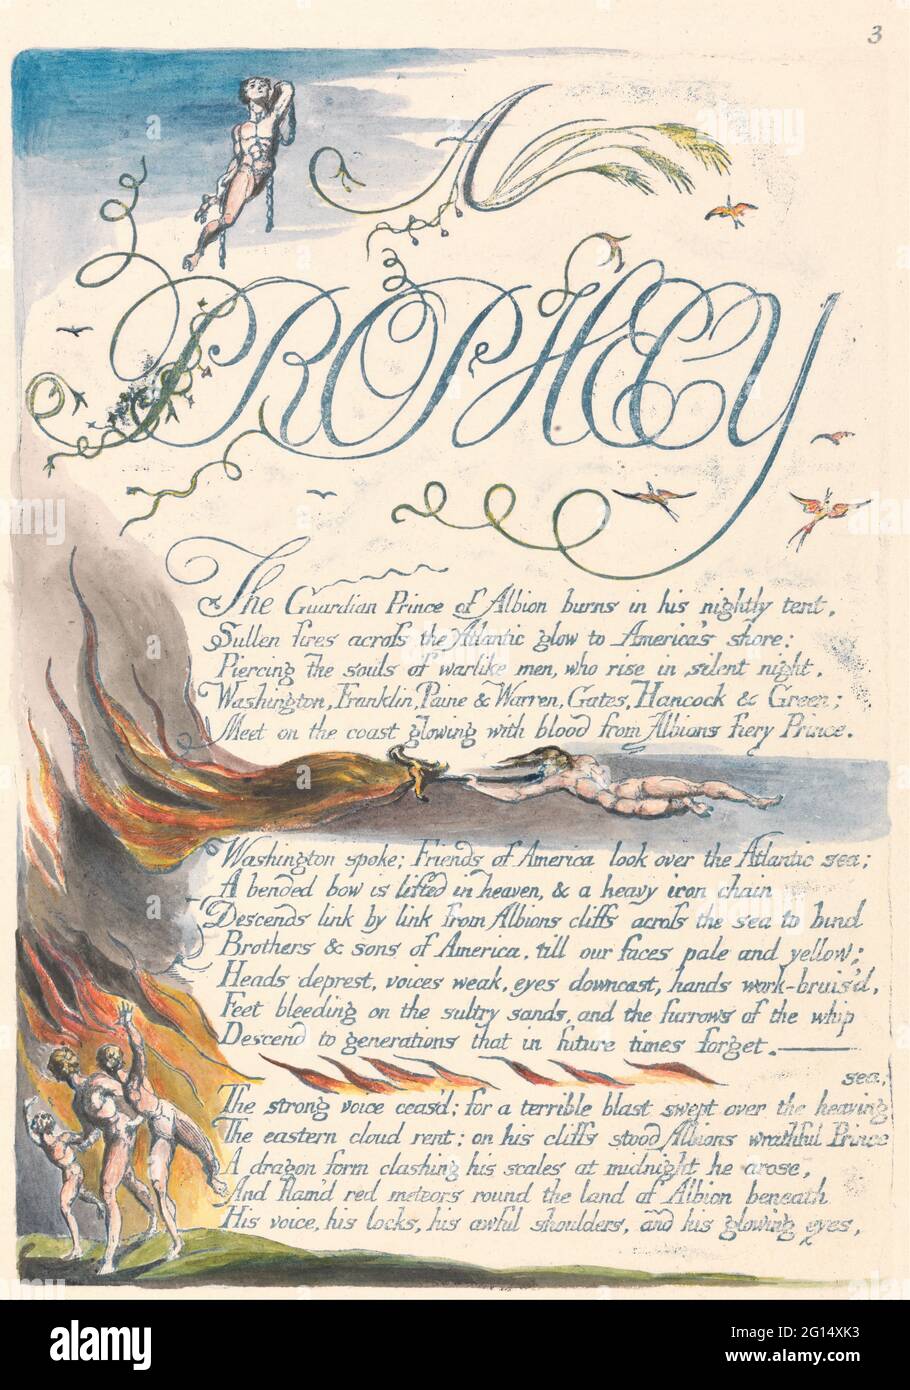 3
A
PROPHECY
The Guardian Prince of Albion burns in his nightly tent,
Sullen fires acroſs the Atlantic glow to America's shore:
Piercing the souls of warlike men, who rise in silent night,
Washington, Franklin, Paine & Warren, Gates, Hancock & Green;
Meet on the coast glowing with blood from Albions fiery Prince.
Washington spoke; Friends of America look over the Atlantic sea;
A bended bow is lifted in heaven, & a heavy iron chain
Descends link by link from Albions cliffs acroſs the sea to bind
Brothers & sons of America, till our faces pale and yellow;
Heads deprest, voices weak, eyes downcast, hands work-bruis'd,
Feet bleeding on the sultry sands, and the furrows of the whip
Descend to generations that in future times forget.
sea.
The strong voice ceas'd; for a terrible blast swept over the heaving
The eastern cloud rent; on his cliffs stood Albions wrathful Prince
A dragon form clashing his scales at midnight he arose,
And flam'd red meteors round the land of Albion beneath
His voice, his locks, his awful shoulders, and his glowing eyes,
alamy
Image ID: 2G14XK3
www.alamy.com